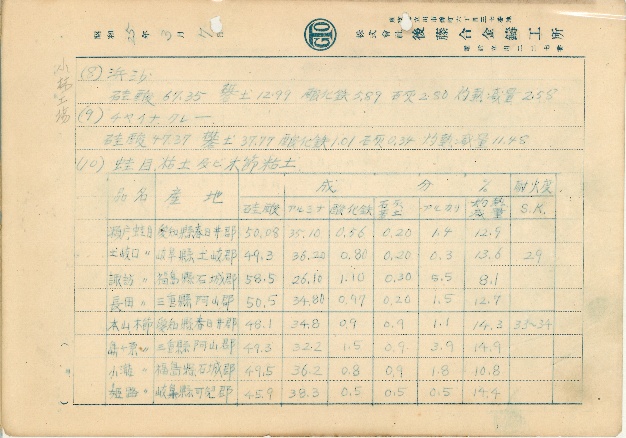 昭和25年3月7日
株式會社 後藤合金鑄工所
小林工場
(8) 浜砂
硅酸 67.35 礬土 12.99 酸化鉄 5.89 石灰 2.80 灼熱減量 2.55
(9) チヤイナクレー
硅酸 47.37 礬土 37.77 酸化鉄 1.01 石灰 0.34 灼熱減量 11.45
(10) 蛙目粘土及ビ木節粘土
品名 産地 成分 % 耐火度
硅酸 アルミナ 酸化鉄 アルカリ 灼熱減量 S.K.
瀬戸蛙目 愛知縣春日井郡 50.08 35.10 0.56 0.20 1.4 12.9
土岐口 〃 岐阜縣土岐郡 49.3 36.20 0.80 0.20 0.3 13.6 29
諏訪 〃 福島縣石城郡 58.5 26.10 1.10 0.30 5.5 8.1
長田 〃 三重縣阿山郡 50.5 34.80 0.97 0.20 1.5 12.7
本山木節 愛知縣春日井郡 48.1 34.8 0.9 0.9 1.1 14.3 33~34
三重縣阿山郡 49.3 32.2 1.5 0.9 3.9 14.9
小瀧 〃 福島縣石城郡 49.5 36.2 0.8 0.9 1.8 10.8
姫路 〃 岐阜縣可児郡 45.9 38.3 0.5 0.5 0.5 14.4